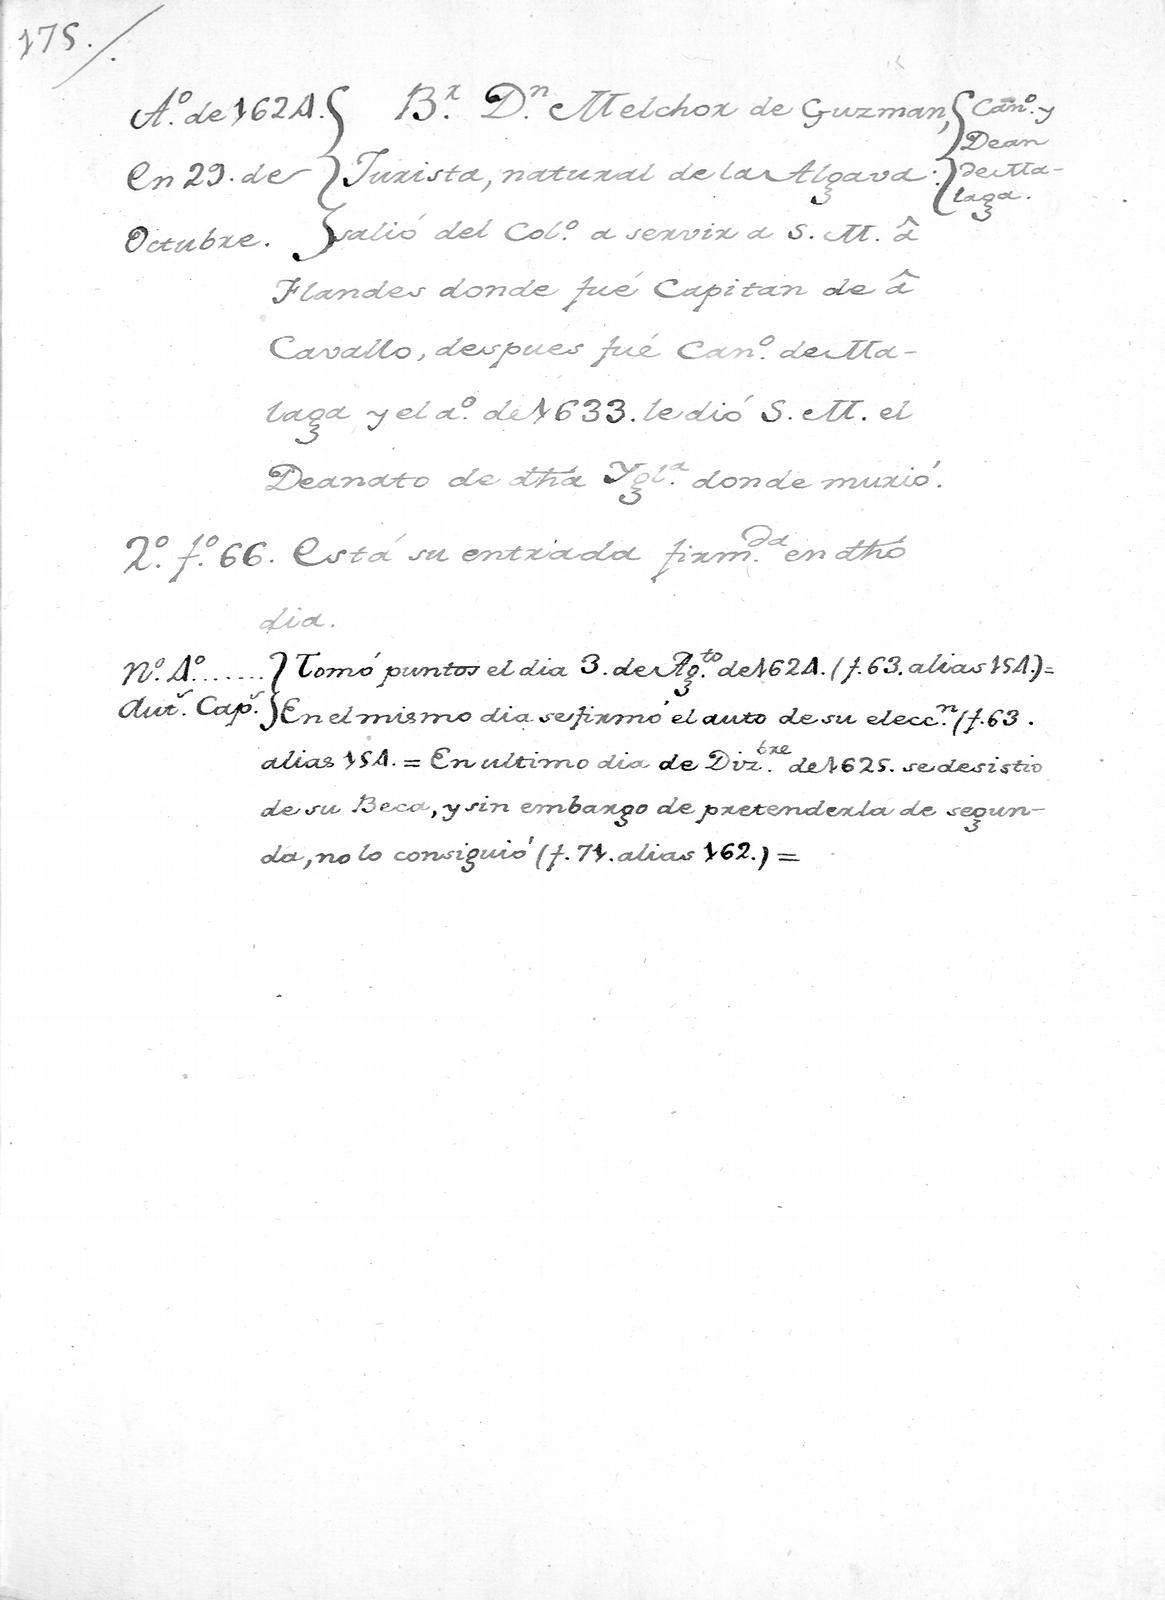 175.
Aº. de 1624. Br. Dn. Melchor de Guzman, Canº. y
Dean
En 29. de Jurista, natural de la Algava: de Ma-
laga.
Octubre. salió del Colº. a servir a S. M. â
Flandes donde fué Capitan de â
Cavallo, despues fué Canº. de Ma-
laga y el aº. de 1633. le dió S. M. el
Deanato de dha Yglª. donde murió.
2º. fº. 66. Está su entrada firm.da en dho
dia.
Nº. 4º...... Tomó puntos el dia 3. de Ag.to de 1624. (f. 63. alias 154.)=
Aut.s Cap.s En el mismo dia se firmó el auto de su elecc.n (f. 63.
alias 154. = En ultimo dia de Diz.bre de 1625. se desistio
de su Beca, y sin embargo de pretenderla de segun-
da, no lo consiguió (f. 71. alias 162.) =